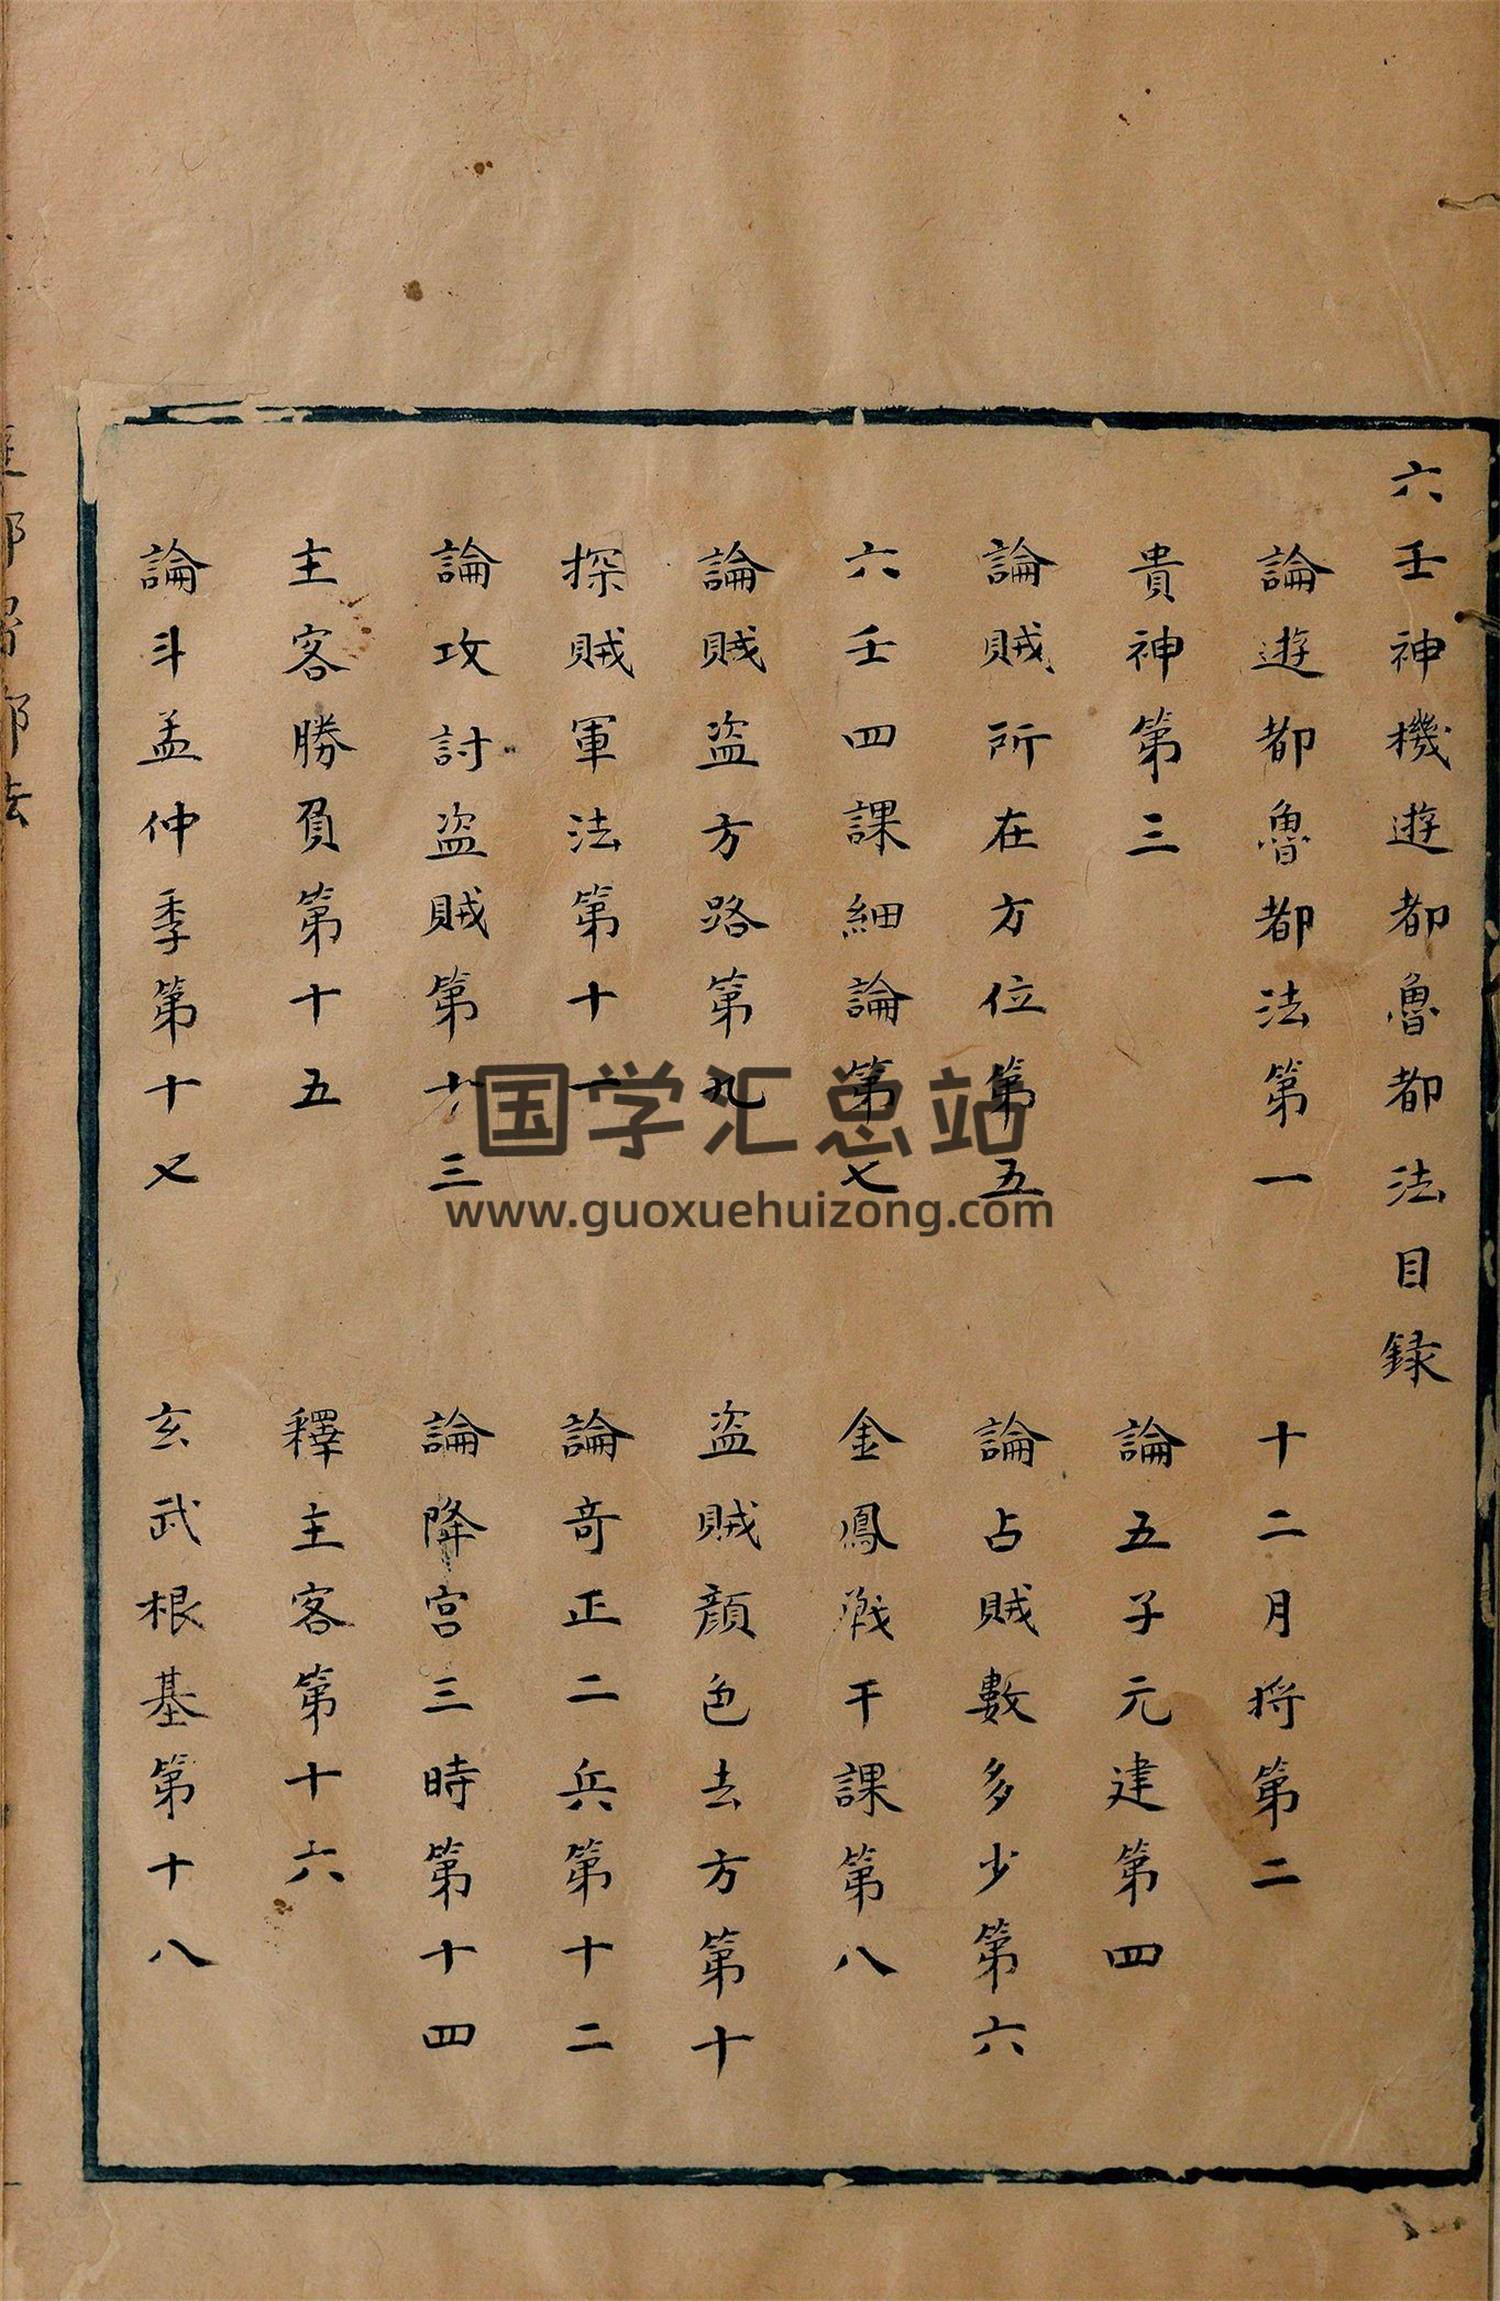 六壬神機遊都魯都法目録
論遊都魯都法第一
十二月将第二
貴神第三
論五子元建第四
論賊所在方位第五
論占賊數多少第六
六壬四課細論第七
金鳳戦干課第八
論賊盗方路第九
盗賊顔色去方第十
探賊軍法第十一
論竒正二兵第十二
論攻討盗賊第十三
論降宫三時第十四
主客勝負第十五
釋主客第十六
論斗孟仲季第十七
玄武根基第十八
國学汇总站
www.guoxuehuizong.com